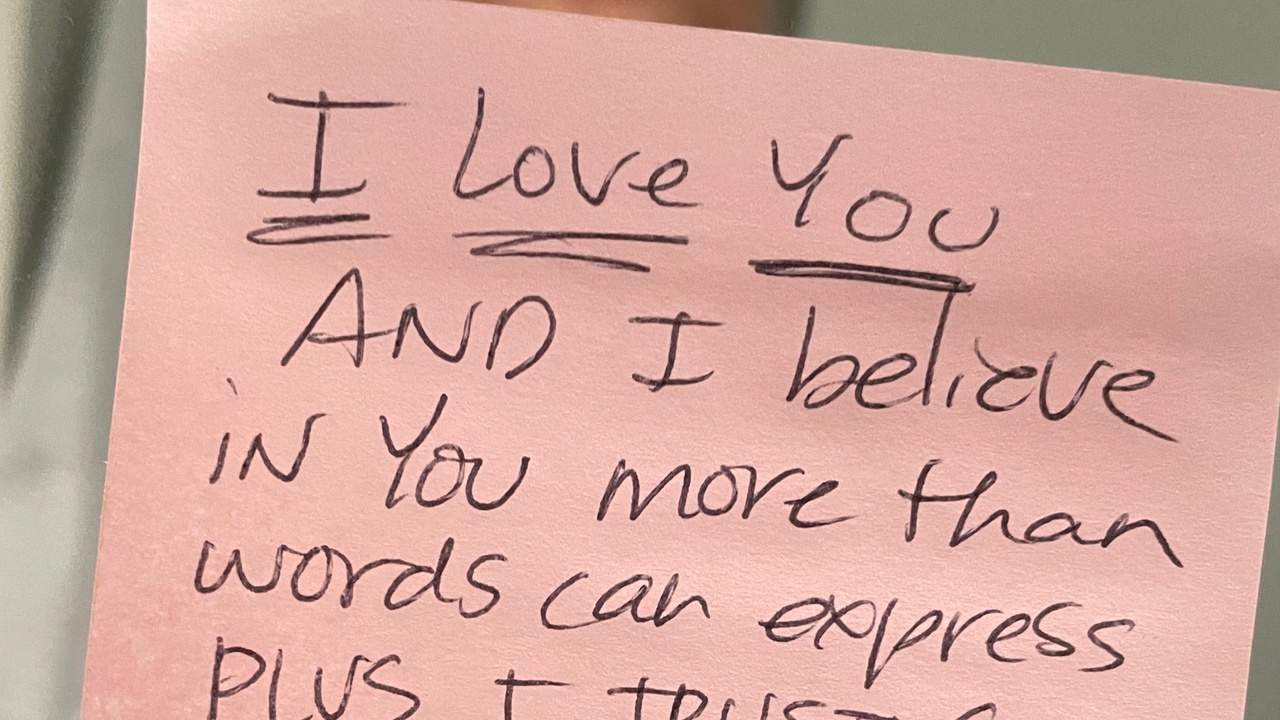 I Love You
AND I believe
iN You more than
words can express
PLUS I TRUST